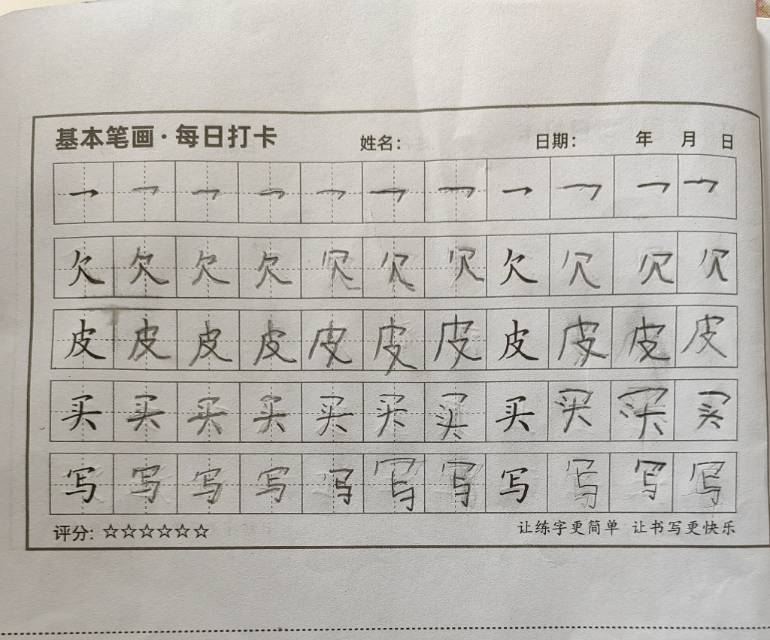 基本笔画·每日打卡 姓名: 日期: 年 月 日
㇖ ㇖ ㇖ ㇖ ㇖ ㇖ ㇖ ㇖ ㇖ ㇖ ㇖
欠 欠 欠 欠 欠 欠 欠 欠 欠 欠 欠
皮 皮 皮 皮 皮 皮 皮 皮 皮 皮 皮
买 买 买 买 买 买 买 买 买 买 买
写 写 写 写 写 写 写 写 写 写 写
评分: ☆☆☆☆☆☆ 让练字更简单 让书写更快乐